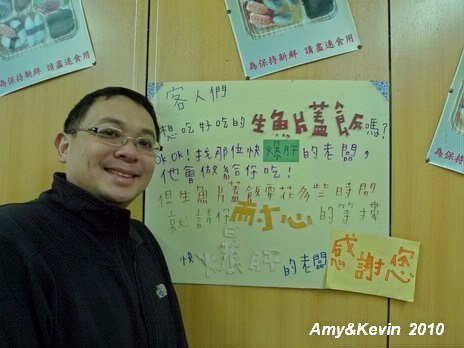 為保持新鮮 請盡速食用
為保持新鮮 請盡速食用
為保持新
客人們
想吃好吃的生魚片蓋飯嗎?
Ok.Ok! 找那位快爆肝的老闆,
他會做給你吃!
但生魚片蓋飯要花多些時間
就請你耐心的等摟
快爆肝的老闆
感謝您
Amy&Kevin 2010